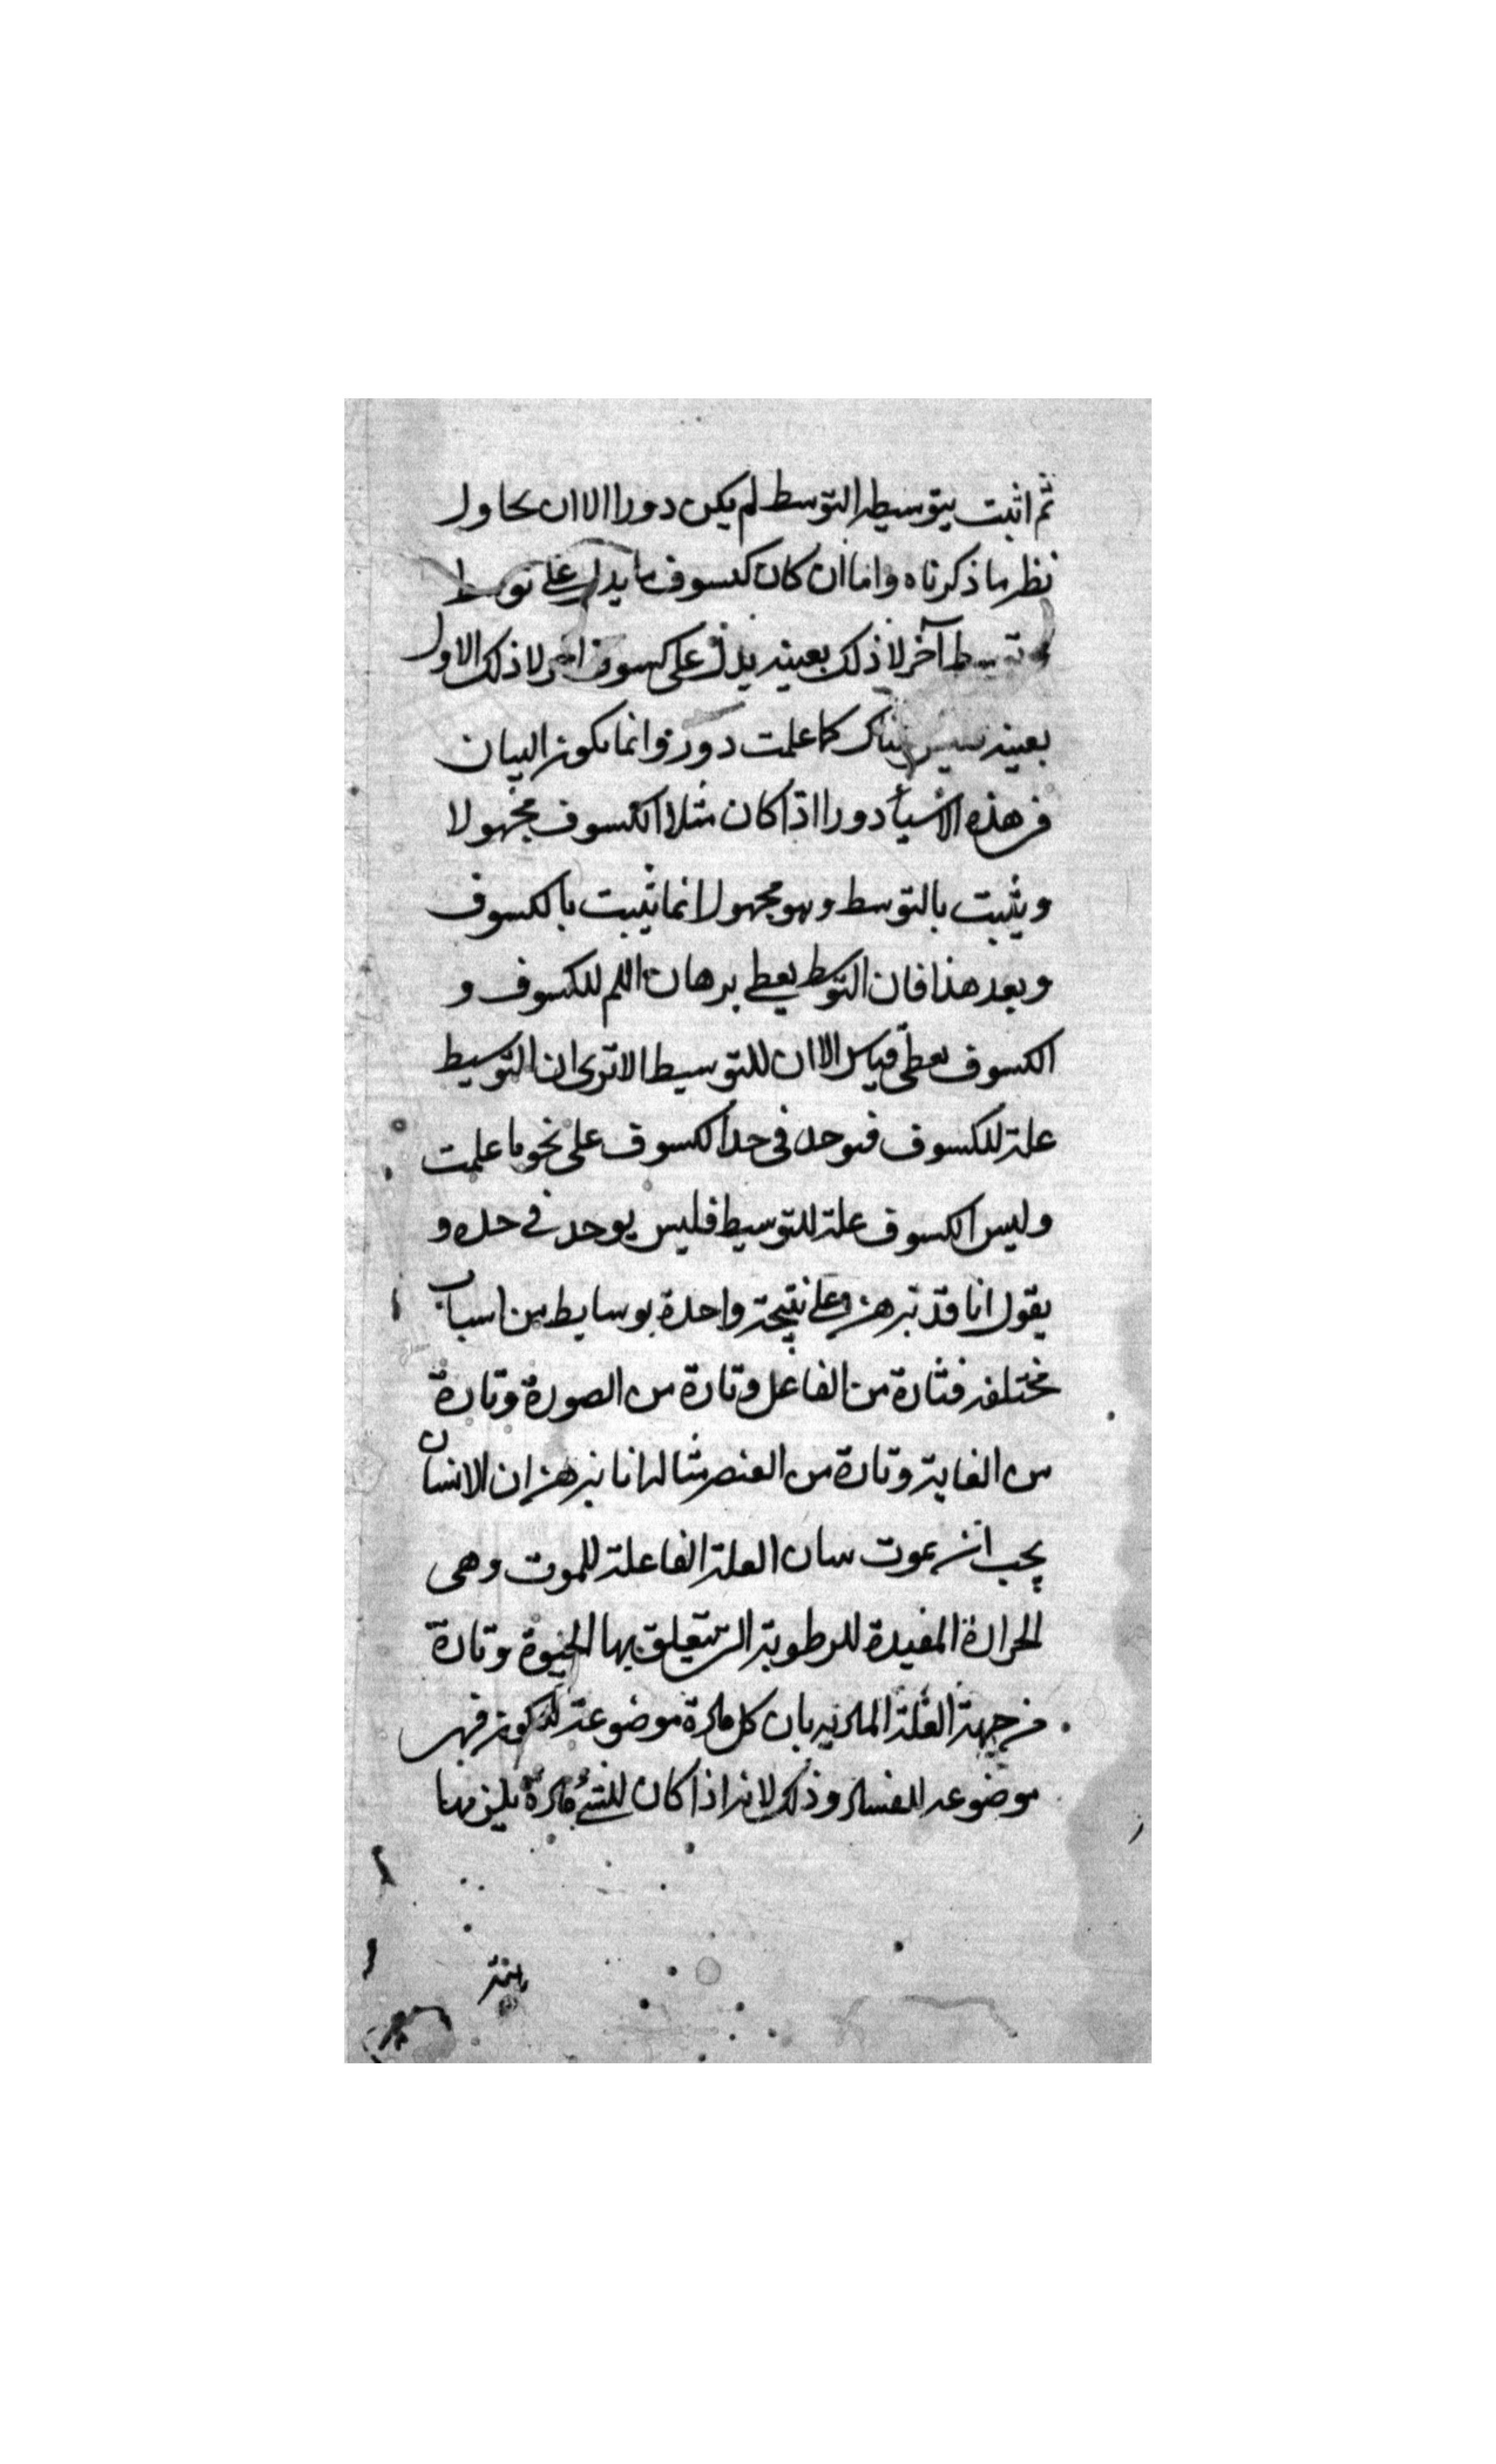 ثم اثبت بتوسيط التوسط لم يكن دورا الا ان يحاول
نظر ما ذكرناه واما ان كان كسوف ما يدل على توسط
وتوسط آخر لا ذلك بعينه يدل على كسوف اخر لا ذلك الاول
بعينه فليس هناك كما علمت دور وانما يكون البيان
فى هذه الاشياء دورا اذا كان مثلا الكسوف مجهولا
ويثبت بالتوسط وهو مجهول انما يثبت بالكسوف
وبعد هذا فان التوسط يعطى برهان اللم للكسوف و
الكسوف يعطى قياس الاان للتوسيط الا ترى ان التوسيط
علة للكسوف فيوجد فى حد الكسوف على نحو ما علمت
وليس الكسوف علة للتوسيط فليس يوجد فى حده و
يقول انا قد نبرهن على نتيجة واحدة بوسايط من اسباب
مختلفة فتارة من الفاعل وتارة من الصورة وتارة
من الغاية وتارة من العنصر مثاله انا نبرهن ان الانسان
يجب ان يموت بيان العلة الفاعلة للموت وهى
الحرارة المفيدة للرطوبة التى تتعلق بها الحيوة وتارة
من جهة العلة المادية بان كل مادة موضوعة للكون فهى
موضوعة للفساد وذلك لانه اذا كان للشئ مادة يلزمها